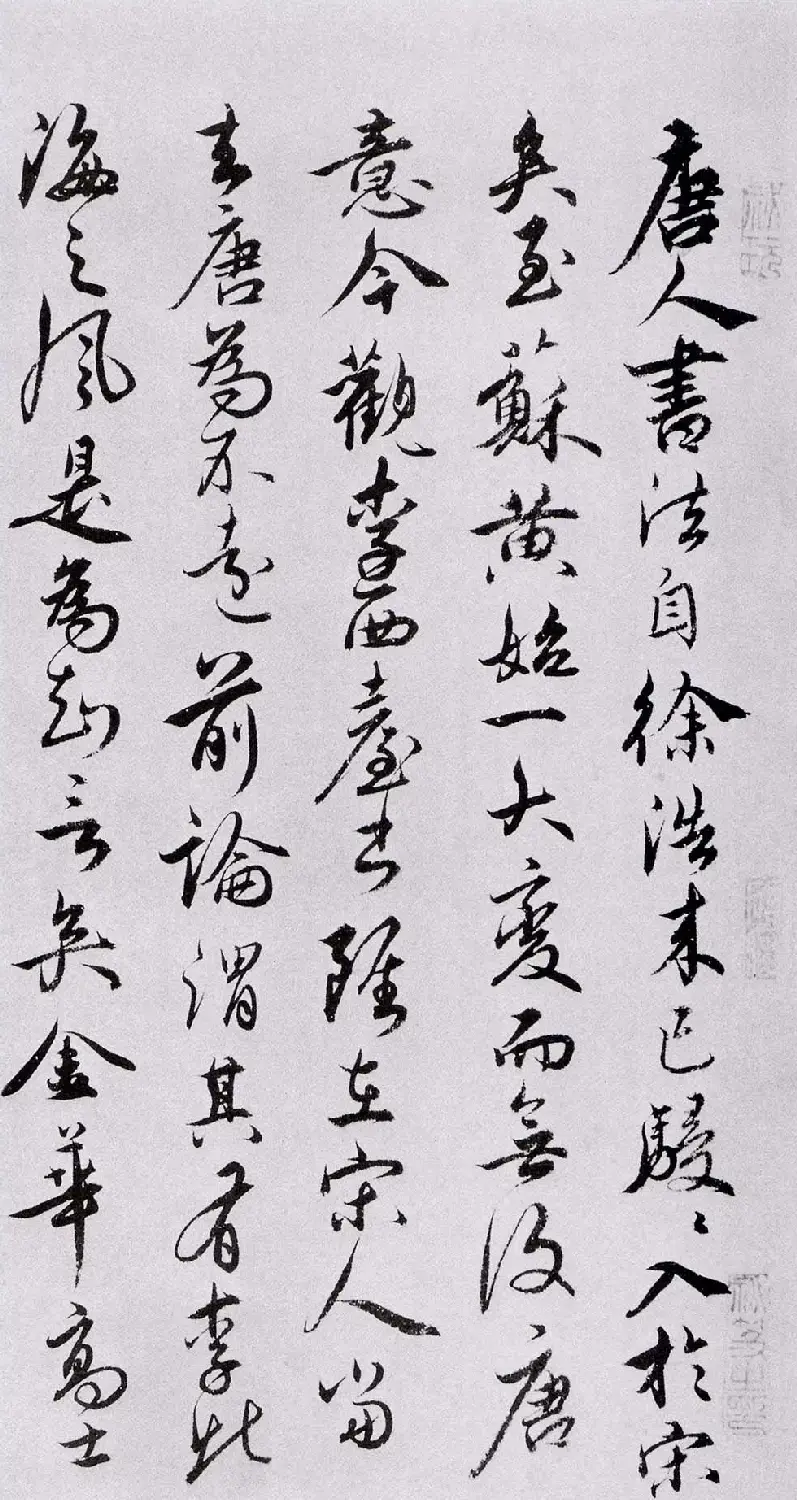 唐人書法自徐浩來已駸〻入於宋
矣至蘇黄始一大變而無復唐
意今觀李西臺書雖在宋人當
去唐為不遠前論謂其有李北
海之風是為知言矣金華高士